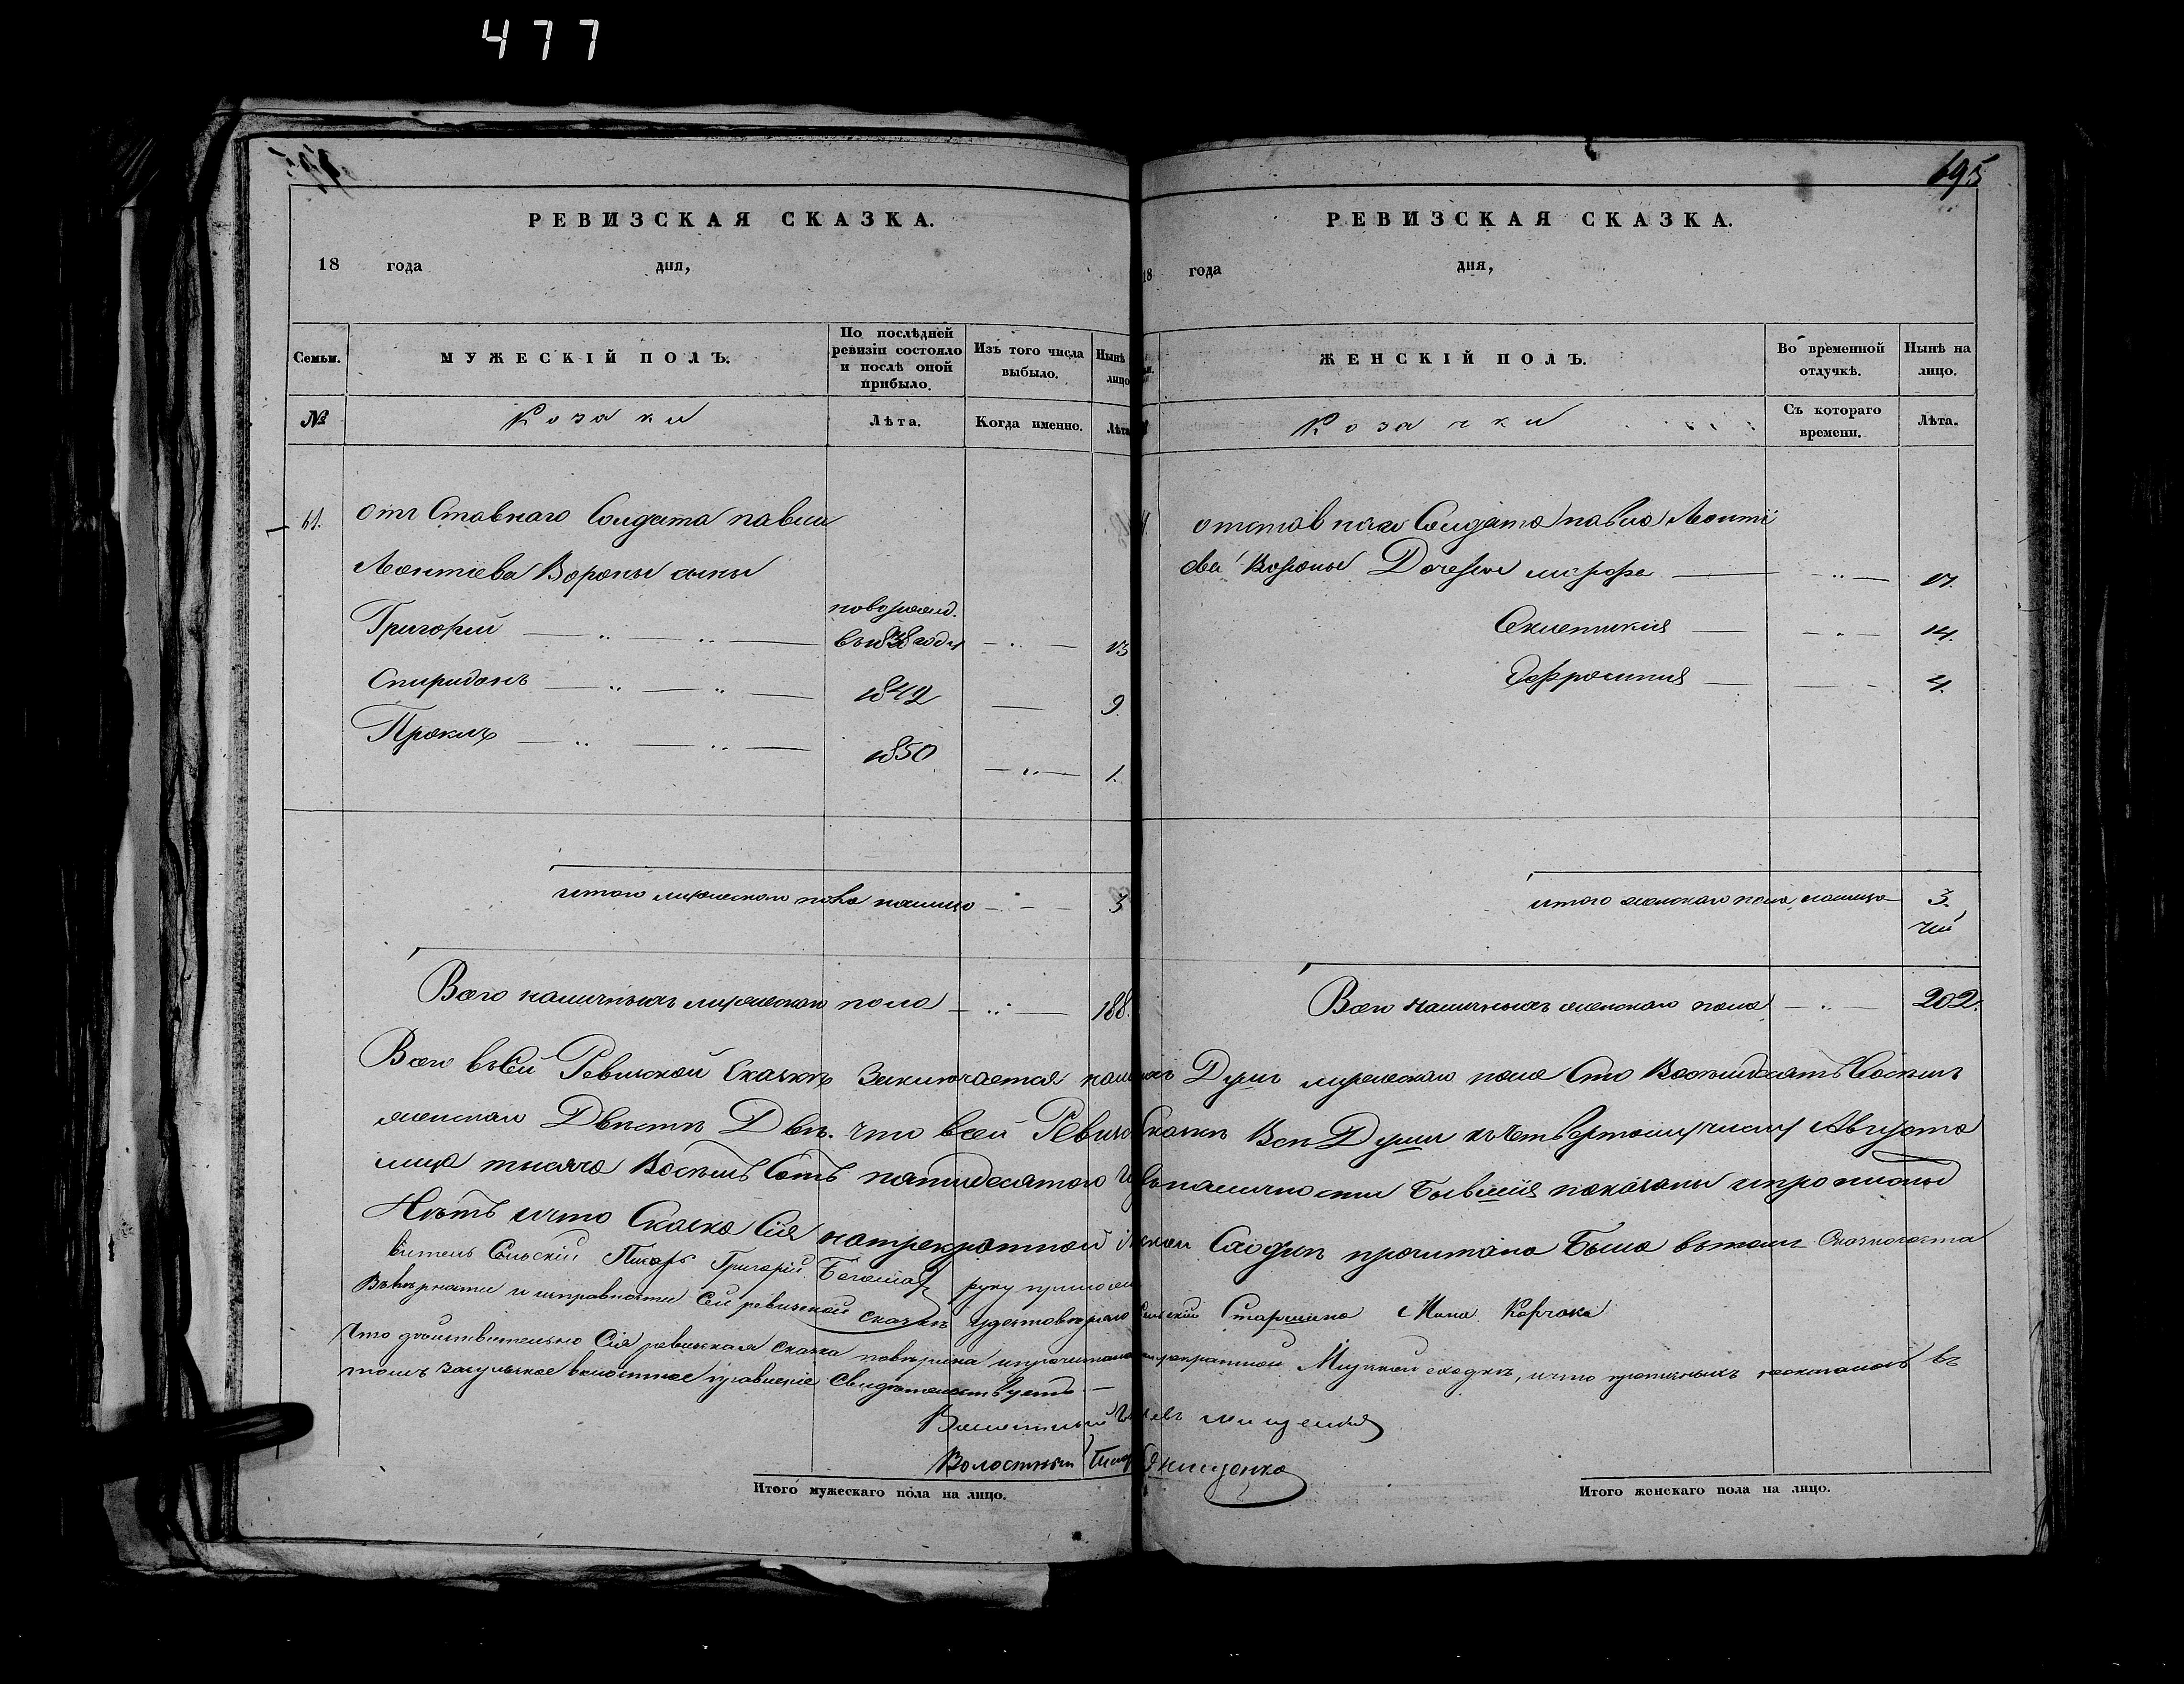 477
РЕВИЗСКАЯ СКАЗКА.
18 года дня,
Семьи. МУЖЕСКІЙ ПОЛЪ. По послѣдней ревизіи состояло и послѣ оной прибыло. Изъ того числа выбыло. Нынѣ лицо
№ Козаки Лѣта. Когда именно. Лѣта
61. отъ Ставнаго Солдата павла
Леонтіева Вороны сыны
Григорій новорожд. въ 1838 году 13
Спиридонъ 1842 9.
Проклъ 1850 1.
итого мужескаго пола налицо 3
Всего наличныхъ мужескаго пола 188.
195
РЕВИЗСКАЯ СКАЗКА.
18 года дня,
ЖЕНСКІЙ ПОЛЪ. Во временной отлучкѣ. Нынѣ на лицо.
Козачки Съ котораго времени. Лѣта.
отставнаго Солдата павла Леонті
ева Вороны Дочери 17.
14.
Ефросинія 4.
итого женскаго пола налицо 3.
Всего наличныхъ женскаго пола 202.
Всего въ Сей Ревизской Сказкѣ Заключается Душъ мужескаго пола Сто Восемьдесятъ Восемь
женскаго Двѣсти Двѣ. что в сей Ревизской Сказкѣ Всѣ Души къ Четвертому числу Августа
тысяча Восемь Сотъ пятидесятого Года въ наличности Бывшія показаны и прописныхъ
Нѣтъ и что Сказка Сія на трекратной Сходкѣ прочитана Была въ томъ
Сельскій Писарь Григорій руку приложилъ
Въ вѣрности и исправности Сей ревизской сказки удостовѣряю Сельскій Старшина
Что дѣйствительно Сія ревизская сказка повѣрена и прочитана на трекратной Мірской сходкѣ, и что прописныхъ неоказалось въ
томъ волостное правленіе Свидѣтельствуетъ.
Волостный Голова
Волостный Писарь
Итого мужескаго пола на лицо.
Итого женскаго пола на лицо.